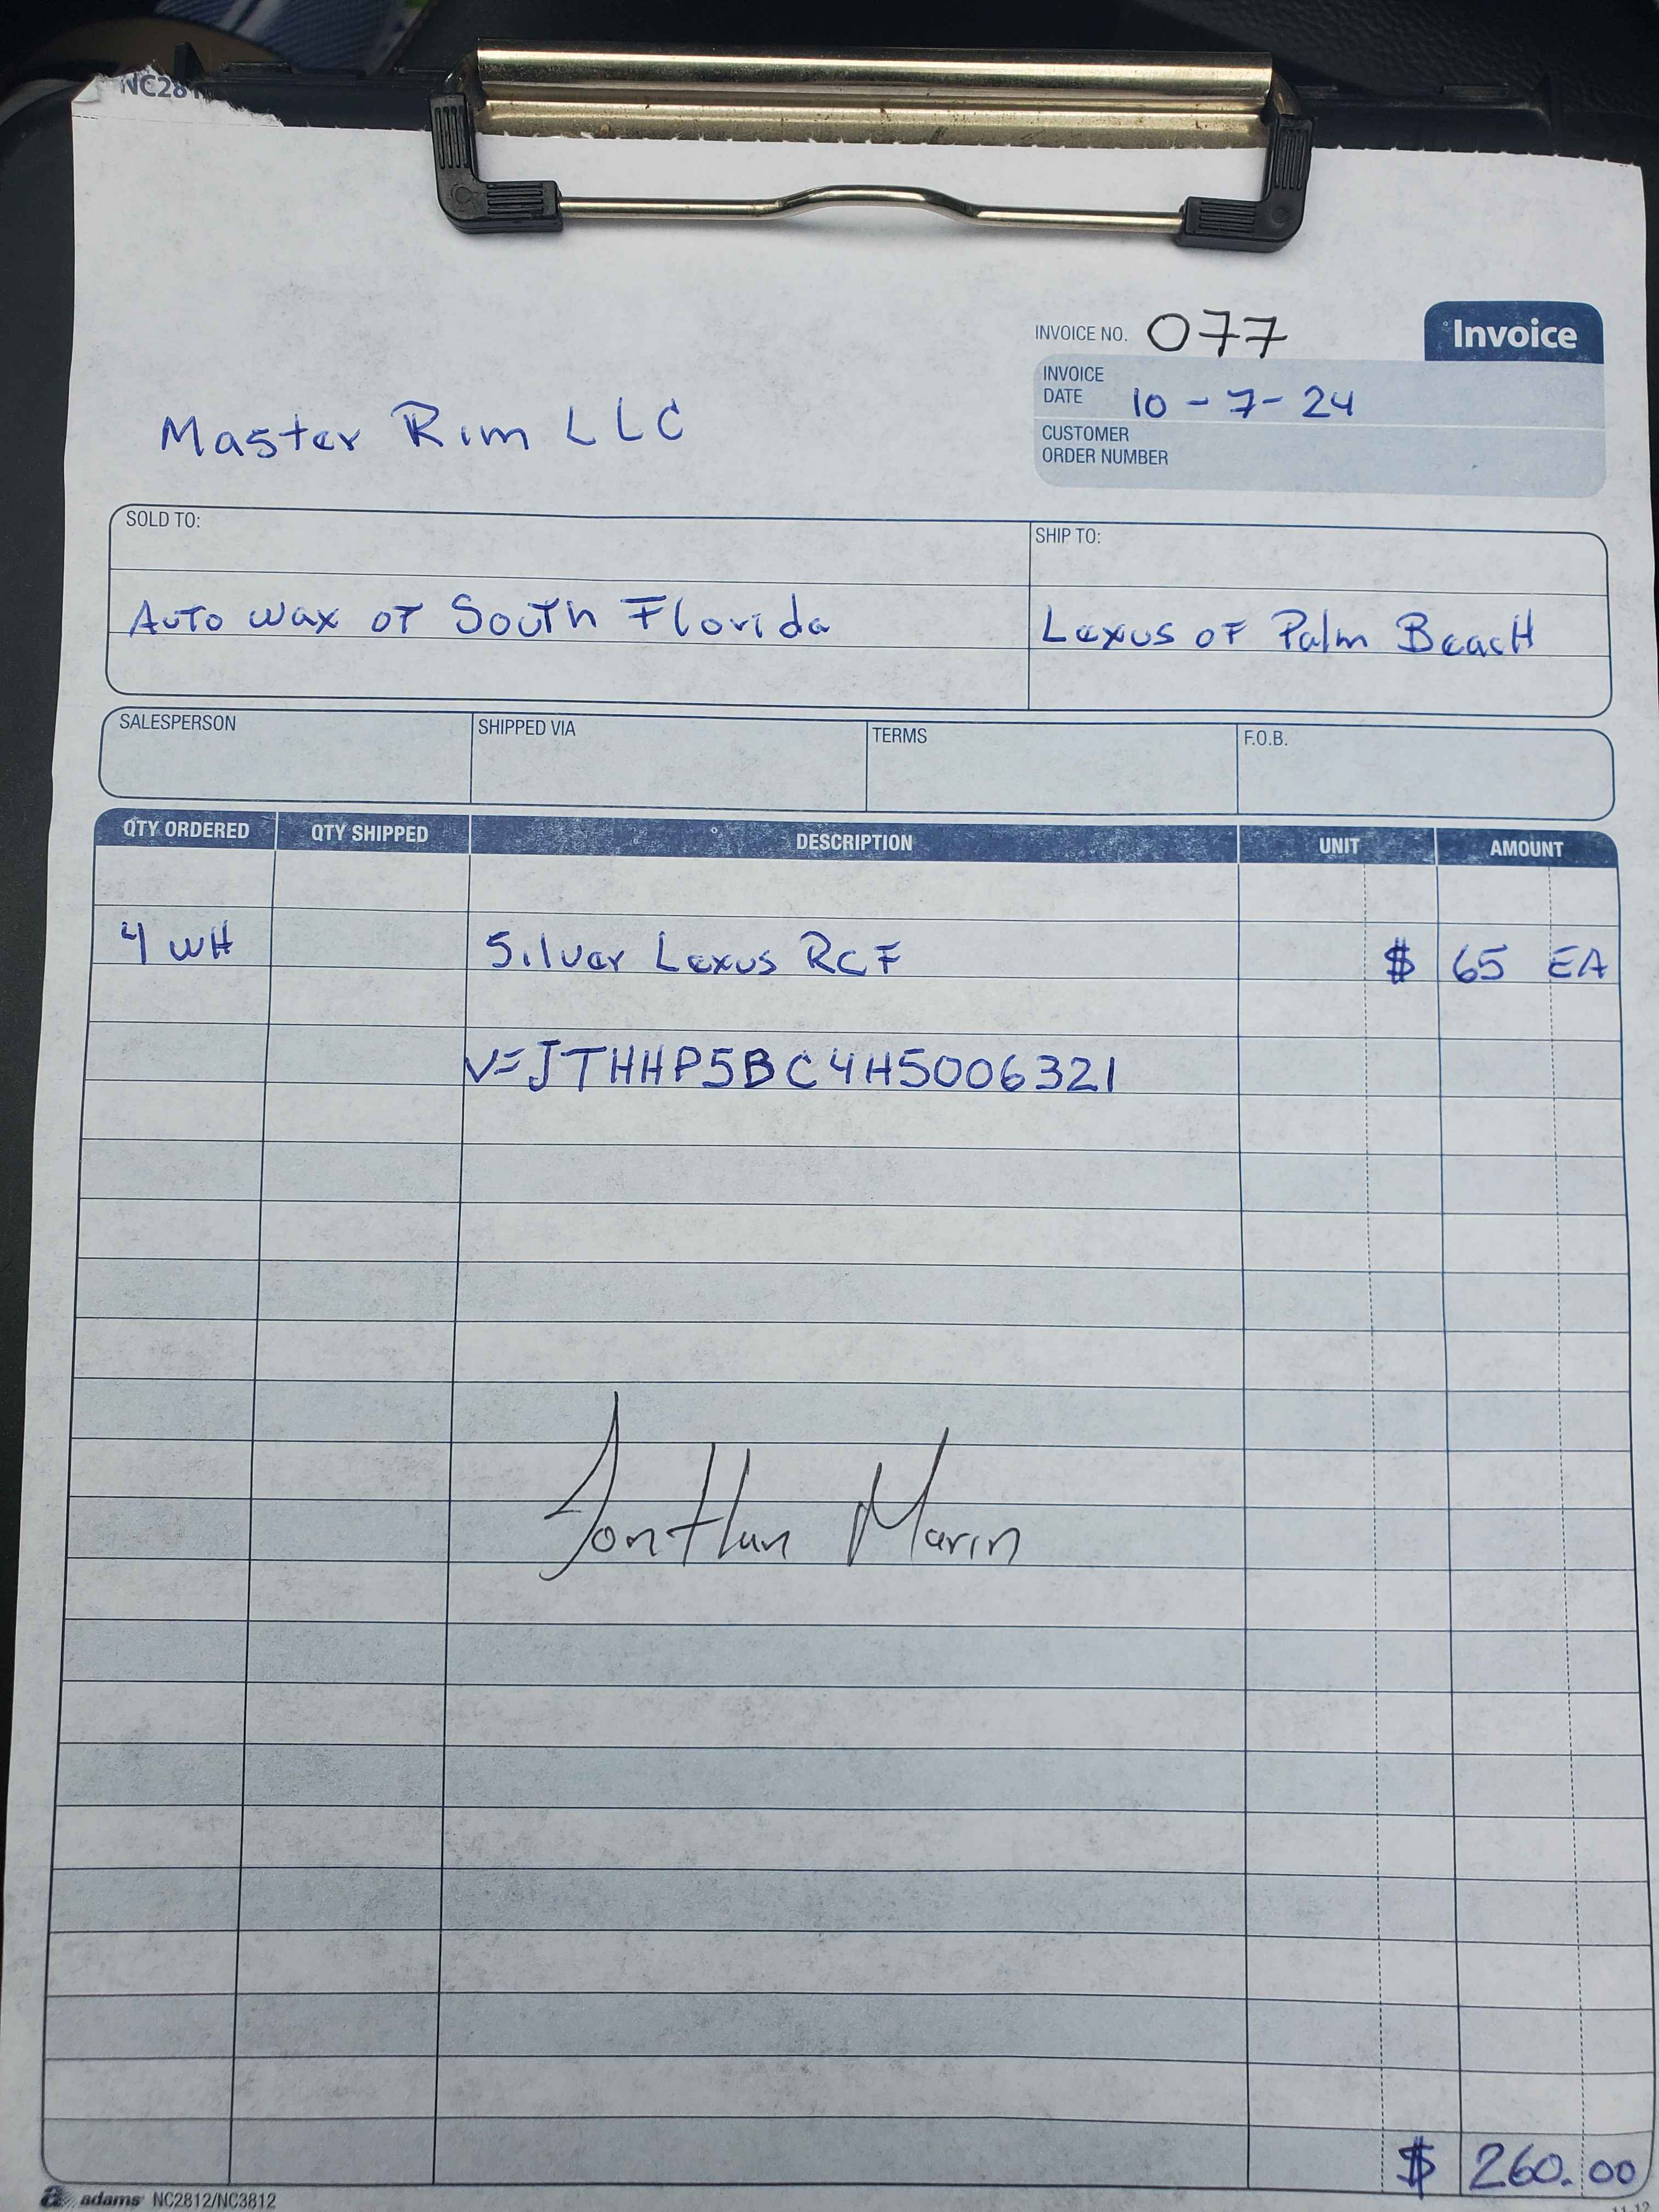 NC281
INVOICE NO. 077
Invoice
INVOICE DATE 10-7-24
CUSTOMER ORDER NUMBER
Master Rim LLC
SOLD TO:
SHIP TO:
Auto Wax of South Florida
Lexus of Palm Beach
SALESPERSON SHIPPED VIA TERMS F.O.B.
QTY ORDERED QTY SHIPPED DESCRIPTION UNIT AMOUNT
4 WH Silver Lexus RCF $ 65 EA
V=JTHHP5BC4H5006321
Jonthan Marin
$ 260.00
adams NC2812/NC3812